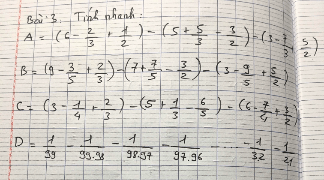 Bài 3. Tính nhanh:
A = (6 - 2/3 + 1/2) - (5 + 5/3 - 3/2) - (3 - 7/3 + 5/2)
B = (9 - 3/5 + 2/3) - (7 + 7/5 - 3/2) - (3 - 9/5 + 5/2)
C = (3 - 1/4 + 2/3) - (5 + 1/3 - 6/5) - (6 - 7/4 + 3/2)
D = 1/99 - 1/99.98 - 1/98.97 - 1/97.96 - ... - 1/32 - 1/21